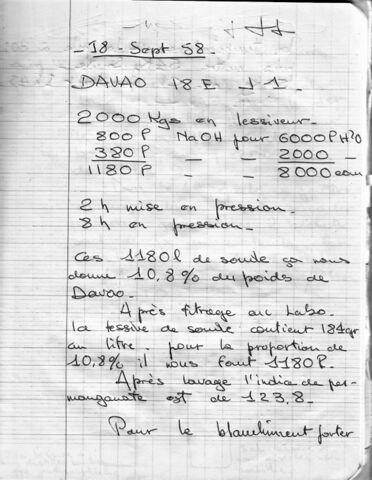 - 18 - Sept 58 -
DAVAO 18 E J 1.
2000 Kgs en lessiveur -
800 l NaOH pour 6000 l H2O
380 l — — 2000 —
1180 l 8000 eau
2 h mise en pression -
8 h en pression -
Ces 1180 l de soude ça nous
donne 10,8 % du poids de
Davao -
Après titrage au Labo.
la lessive de soude contient 184 gr
au litre. pour la proportion de
10,8% il nous faut 1180 l.
Après lavage l'indice de per-
manganate est de 123,8 -
Pour le blanchiment porter